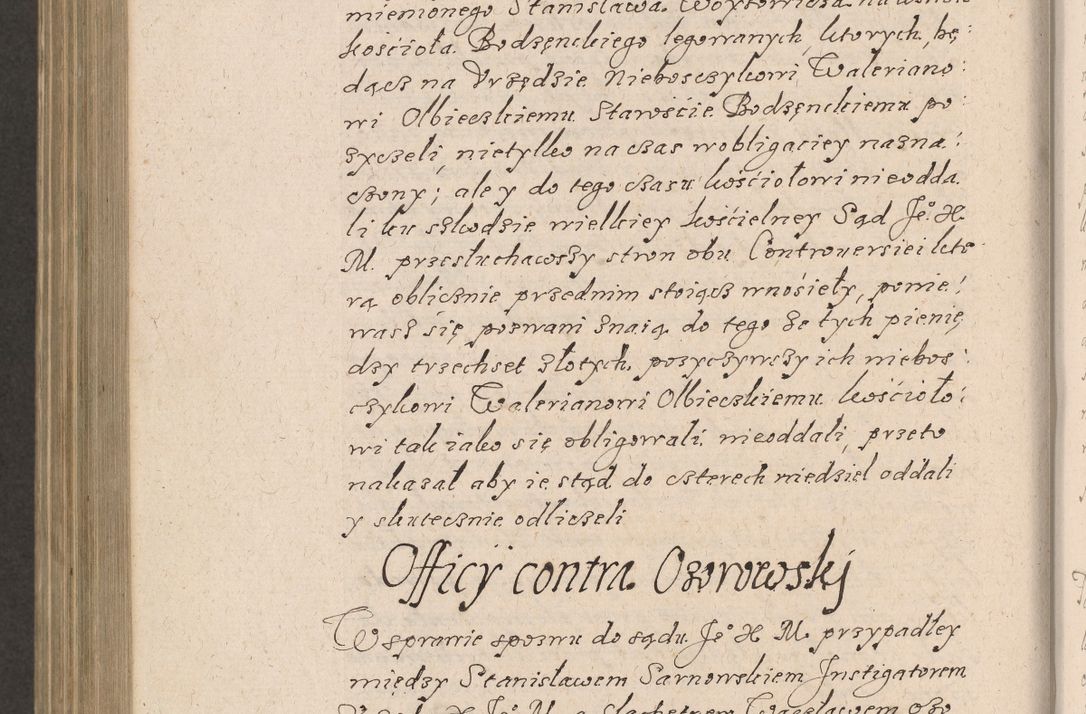 mienionego Stanisława Woytowicza na
kościoła Bodzęnckiego legowanych, ktorych, bę
dącz na Vrzędzie Nieboszczykowi Waleriano:
wi Olbieczkiemu Staroście Bodzęnckiemu po:
zyczeli, nietylko na czas w obligaciey nazna:
czony; ale y do tego czasu kościołowi nieodda
li ku szkodzie wielkiey kościelney Sąd Je° X
M. przesłuchawszy stron obu Controuersiei kto
rą oblicznie przednim stoiącz wnosieły, ponie:
wasz się pozwani znaią do tego że tych pienię
dzy trzechset złotych, pozyczywszy ich niebos:
czykowi Walerianowi Olbieczkiemu kościoło:
wi tak iako się obligowali nieoddali, przeto
nakazał aby ie stąd do czterech niedziel oddali
y skutecznie odliczeli
Officÿ contra Ozorowskj
W sprawie spozwu do sądu Je° X M. przypadłey
między Stanisławem Sarnowskiem Instigatorem
X Je° M. a Slachetnem Wacławem Ozo